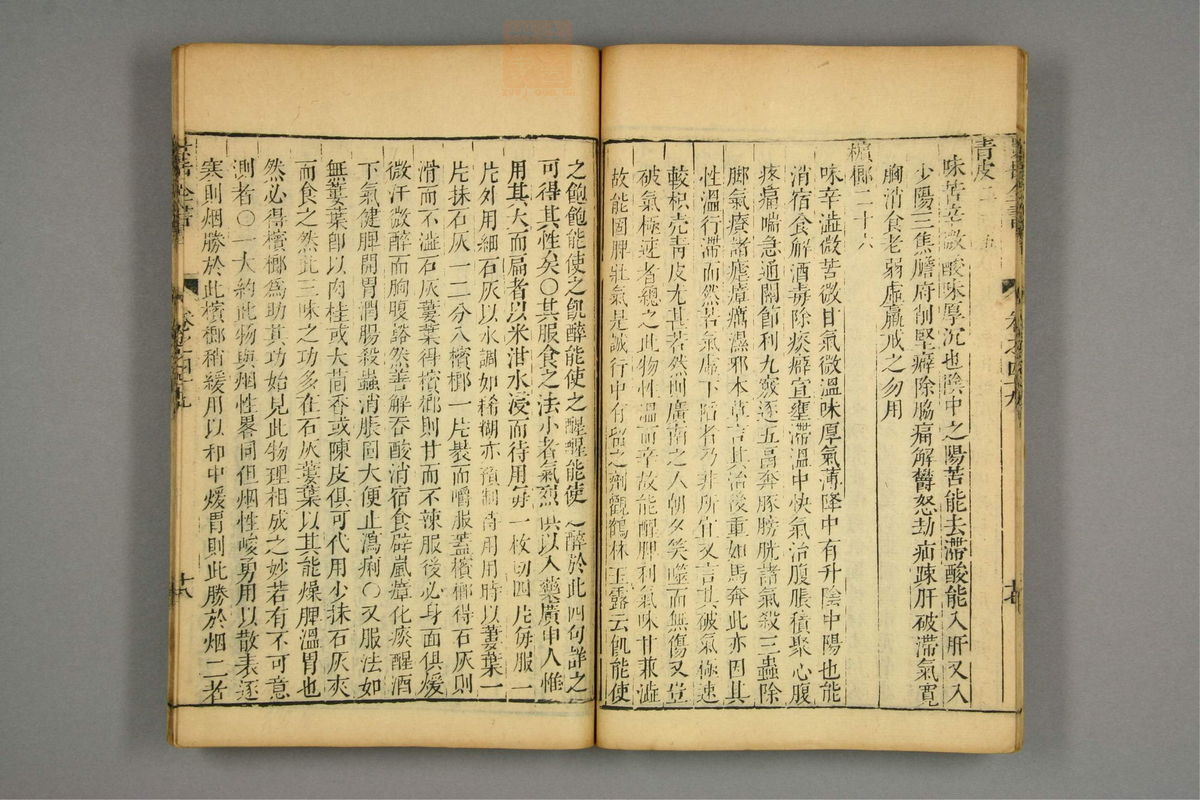 青皮二
味苦辛微酸味厚沉也陰中之陽苦能去滯酸能入肝又入
少陽三焦膽府削堅癖除脇痛解鬱怒劫疝疎肝破滯氣寬
胸消食老弱虛羸戒之勿用
檳榔二十六
味辛澁微苦微甘氣微溫味厚氣薄降中有升陰中陽也能
消宿食解酒毒除痰癖宣壅滯溫中快氣治腹脹積聚心腹
疼痛喘急通關節利九竅逐五鬲奔豚膀胱諸氣殺三蟲除
脚氣療諸瘧瘴癘濕邪本草言其治後重如馬奔此亦因其
性溫行滯而然若氣虛下陷者乃非所宜又言其破氣極速
較枳壳青皮尤甚若然則廣南之人朝夕笑噬而無傷又豈
破氣極速者總之此物性溫而辛故能醒脾利氣味甘兼澁
故能固脾壯氣是誠行中有留之劑觀鶴林玉露云飢能使
之飽飽能使之飢醉能使之醒醒能使之醉於此四句詳之
可得其性矣〇其服食之法小者氣烈俱以入藥廣中人惟
用其大而扁者以米泔水浸而待用每一枚切四片每服一
片外用細石灰以水調如稀糊亦預制待用用時以蔞葉一
片抹石灰一二分入檳榔一片裝而嚼服蓋檳榔得石灰則
滑而不澁石灰蔞葉得檳榔則甘而不辣服後必身面俱煖
微汗微醉而胸腹豁然善解吞酸消宿食辟嵐瘴化痰醒酒
下氣健脾開胃潤腸殺蟲消脹固大便止瀉痢〇又服法如
無蔞葉卽以肉桂或大茴香或陳皮俱可代用少抹石灰夾
而食之然此三味之功多在石灰蔞葉以其能燥脾溫胃也
然必得檳榔爲助其功始見此物理相成之妙若有不可意
測者〇一大約此物與烟性畧同但烟性峻勇用以散表逐
寒則烟勝於此檳榔稍緩用以和中煖胃則此勝於烟二者
景岳全書
卷之四十九
十八